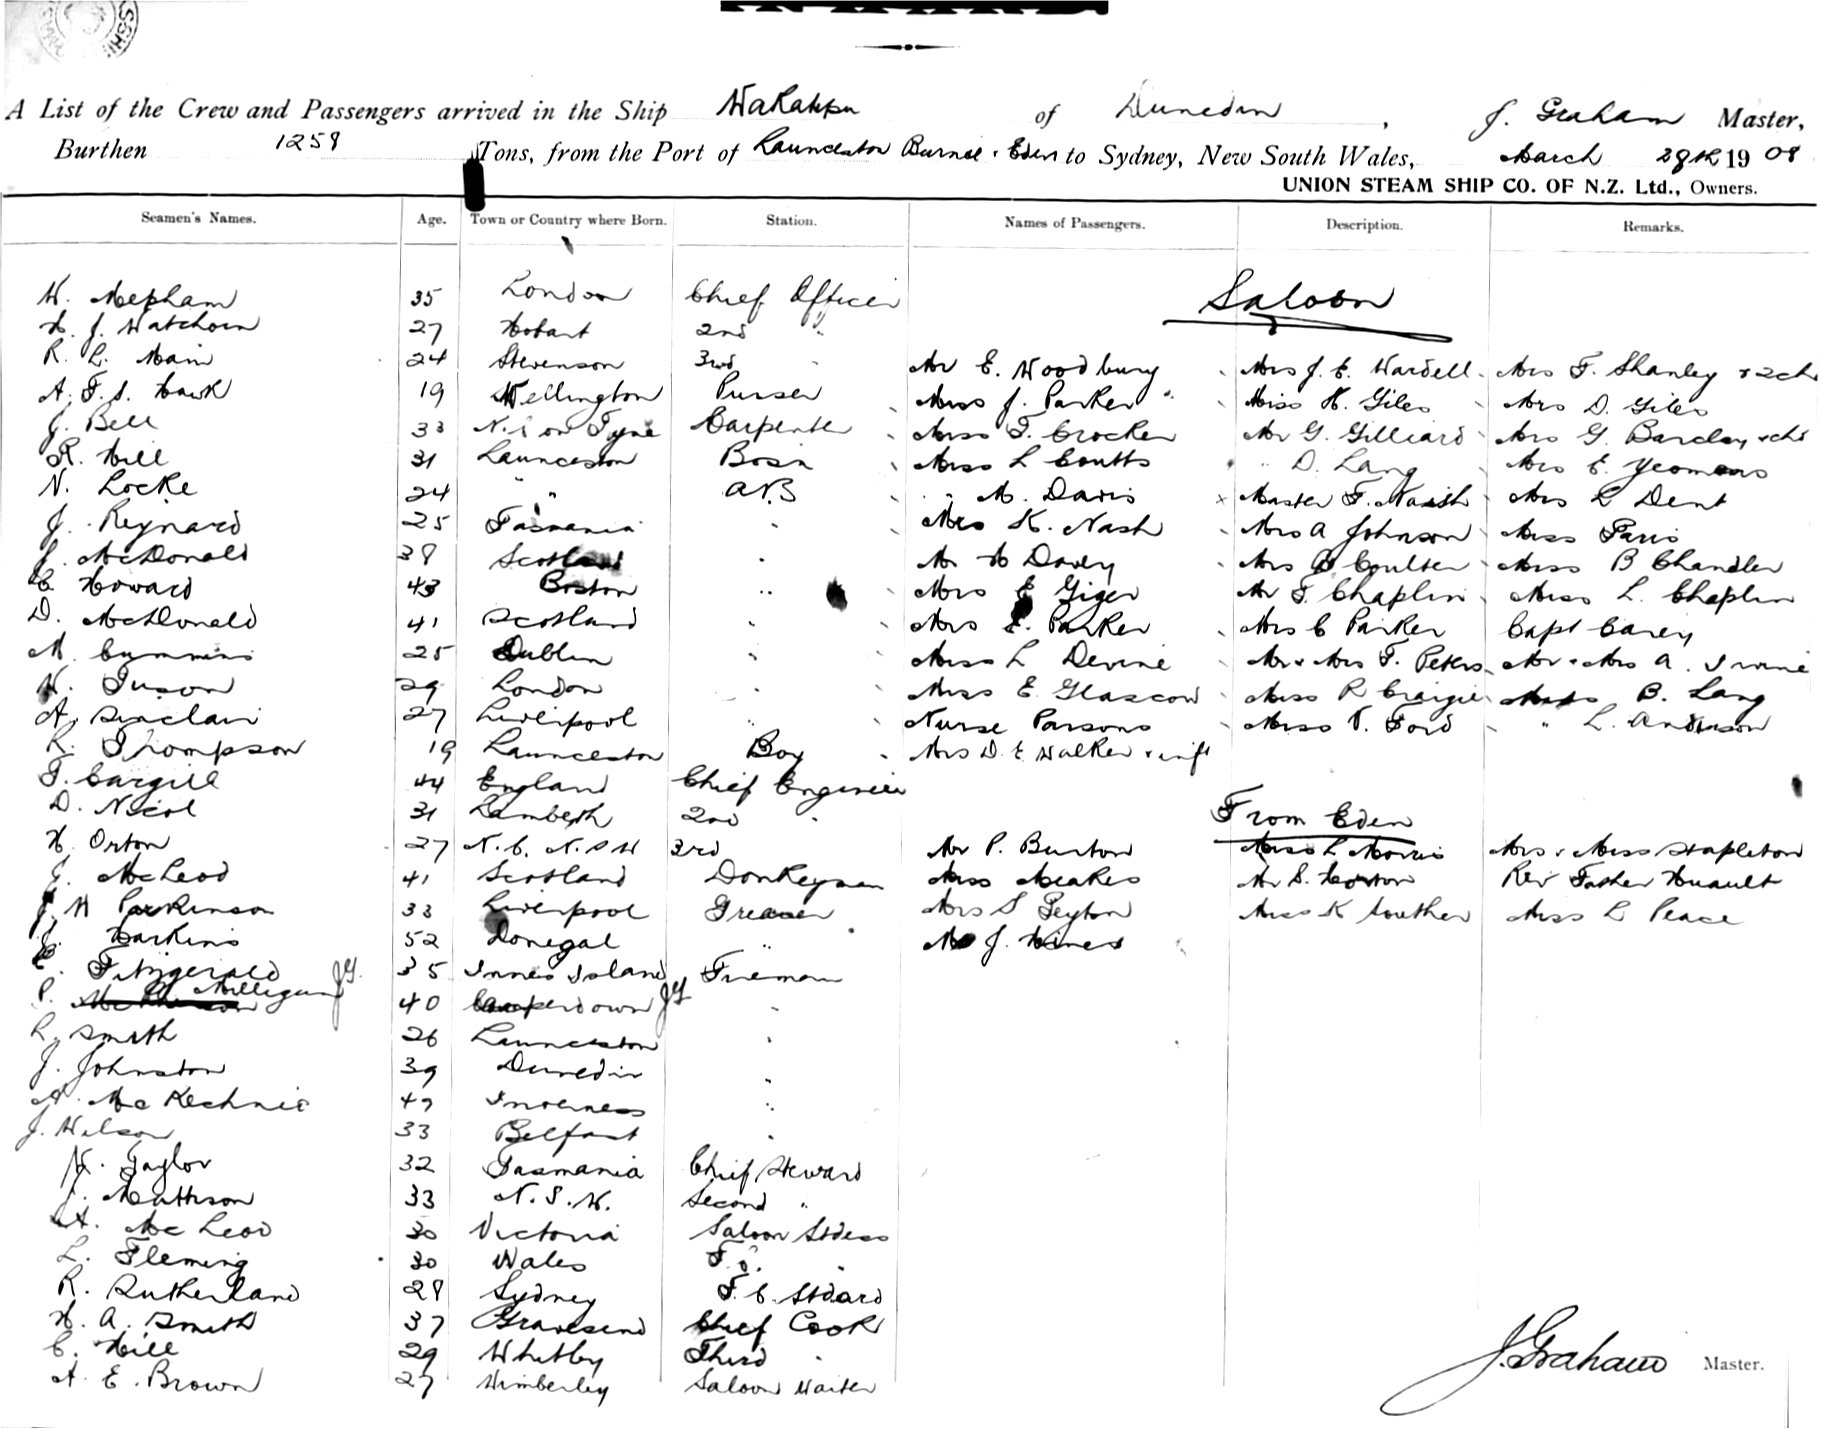 A List of the Crew and Passengers arrived in the Ship Wakatipu of Dunedin, J. Graham Master,
Burthen 1258 Tons, from the Port of Launceston Burnie & Eden to Sydney, New South Wales, March 28th 1908
UNION STEAM SHIP CO. OF N.Z. Ltd., Owners.
Seamen's Names. Age. Town or Country where Born. Station. Names of Passengers. Description. Remarks.
Saloon
W. Mepham 35 London Chief Officer
H. J. Watchorn 27 Hobart 2nd "
R. L. Main 24 Stevenson 3rd " Mr E. Woodbury Mrs J. E. Wardell Mrs F. Shanley & 2 ch
A. F. S. Hawk 19 Wellington Purser Miss J. Parker Miss H. Giles Mrs D. Giles
J. Bell 33 N.C on Tyne Carpenter Miss F. Crocker Mr G. Gilliard Mrs G. Barclay & ch
R. Hill 31 Launceston Bosn Miss L Coutts " D. Lang Mrs E. Yeomans
N. Locke 24 " " A.B " M. Davis Master F. Naish Mrs L Dent
J. Reynard 25 Tasmania " Mrs K. Nash Mrs A Johnson Miss Paris
J. McDonald 38 Scotland " Mr H Davey Mrs Coulter Miss B Chandler
C Howard 43 Boston " Mrs E Giger Mr F. Chaplin Miss L. Chaplin
D. McDonald 41 Scotland " Mrs E. Parker Mrs C Parker Capt Carey
M. Cummins 25 Dublin " Miss L Devine Mr & Mrs F. Peters Mr & Mrs A. Irvine
W. Tuson 29 London " Miss E Glascow Miss R Craigie Miss B. Lang
A. Sinclair 27 Liverpool " Nurse Parsons Miss V. Ford " L. Anderson
R. Thompson 19 Launceston Boy Mrs D. E Walker & inft
F. Cargill 44 England Chief Engineer
D. Nicol 31 Lambeth 2nd "
From Eden
H. Orton 27 N.C. N.S.W 3rd Mr P. Burton Miss L Morris Mrs & Miss Stapleton
J. McLeod 41 Scotland Donkeyman Miss Meakes Mr S. Horton Rev Father Huault
J. W Parkinson 33 Liverpool Greaser Mrs S Peyton Miss K Souther Miss L Peace
J. Harkins 52 Donegal " J. Hines
C. Fitzgerald 35 Innes Island Fireman
P. Milligan JG 40 Camperdown JG "
L. Smith 26 Launceston "
J. Johnston 39 Dunedin "
A. McKechnie 47 Inverness "
J. Wilson 33 Belfast "
W. Taylor 32 Tasmania Chief Steward
J. Mathison 33 N.S.W. Second "
A. McLeod 30 Victoria Saloon Stdess
L. Fleming 30 Wales F.C. "
R. Sutherland 28 Sydney F.C. Stdard
H. A. Smith 37 Gravesend Chief Cook
C. Hill 29 Whitby Third "
A. E. Brown 27 Wimberley Saloon Waiter
J. Graham Master.